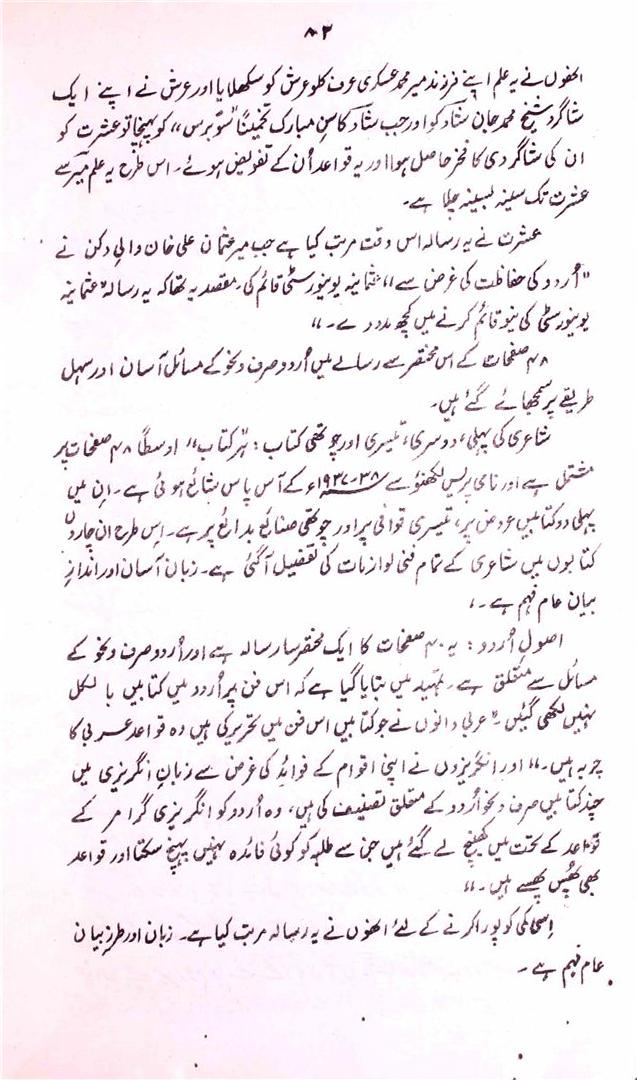 ۸۲
انھوں نے یہ علم اپنے فرزند میر محمد عسکری عرف کلو عرش کو سکھلایا اور عرش نے اپنے ایک
شاگرد شیخ محمد جان شاد کو اور جب شاد کا سن مبارک تخمیناً "سو برس" کو پہنچا تو عشرت کو
ان کی شاگردی کا فخر حاصل ہوا اور یہ قواعد اُن کے تفویض ہوئے۔ اس طرح یہ علم میر سے
عشرت تک سینہ بسینہ چلا ہے۔
عشرت نے یہ رسالہ اس وقت مرتب کیا ہے جب میر عثمان علی خان والیِ دکن نے
"اُردو کی حفاظت کی غرض سے" عثمانیہ یونیورسٹی قائم کی، مقصد یہ تھا کہ یہ رسالہ "عثمانیہ
یونیورسٹی کی بنو قائم کرنے میں کچھ مدد دے۔"
۴۸ صفحات کے اس مختصر سے رسالے میں اُردو صرف و نحو کے مسائل آسان اور سہل
طریقے پر سمجھائے گئے ہیں۔
شاعری کی پہلی، دوسری، تیسری اور چوتھی کتاب: ہر کتاب" اوسطاً ۴۸ صفحات پر
مشتمل ہے اور نامی پریس لکھنؤ سے ۳۸-۱۹۳۷ء کے آس پاس شائع ہوئی ہے۔ اِن میں
پہلی دو کتابیں عروض پر، تیسری قوافی پر اور چوتھی صنائع بدائع پر ہے۔ اس طرح ان چاروں
کتابوں میں شاعری کے تمام فنی لوازمات کی تفصیل آ گئی ہے۔ زبان آسان اور اندازِ
بیان عام فہم ہے۔،
اصولِ اُردو: یہ ۴۰ صفحات کا ایک مختصر سا رسالہ ہے اور اُردو صرف و نحو کے
مسائل سے متعلق ہے۔ تمہید میں بتایا گیا ہے کہ اس فن پر اُردو میں کتابیں بالکل
نہیں لکھی گئیں۔ "عربی دانوں نے جو کتابیں اس فن میں تحریر کی ہیں وہ قواعد عربی کا
چربہ ہیں۔" اور انگریزوں نے اپنی اقوام کے فوائد کی غرض سے زبانِ انگریزی میں
چند کتابیں صرف و نحو اُردو کے متعلق تصنیف کی ہیں، وہ اُردو کو انگریزی گرامر کے
قواعد کے تحت میں کھینچ لے گئے ہیں جن سے طلبہ کو کوئی فائدہ نہیں پہنچ سکتا اور قواعد
بھی پھُس پھسے ہیں۔"
اِسی کمی کو پورا کرنے کے لئے انھوں نے یہ رسالہ مرتب کیا ہے۔ زبان اور طرزِ بیان
عام فہم ہے۔